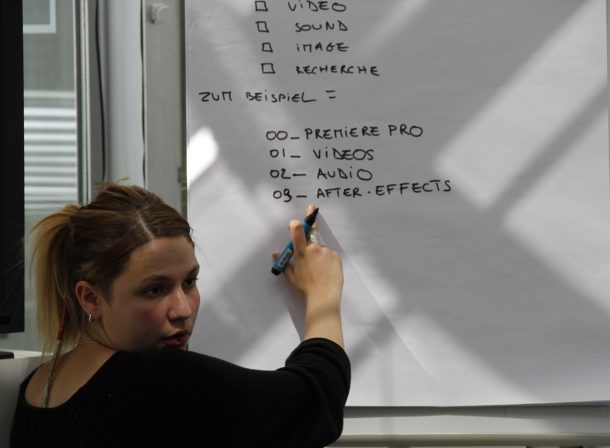 □ VIDEO
□ SOUND
□ IMAGE
□ RECHERCHE
ZUM BEISPIEL =
00_ PREMIERE PRO
01_ VIDEOS
02_ AUDIO
03_ AFTER.EFFECTS